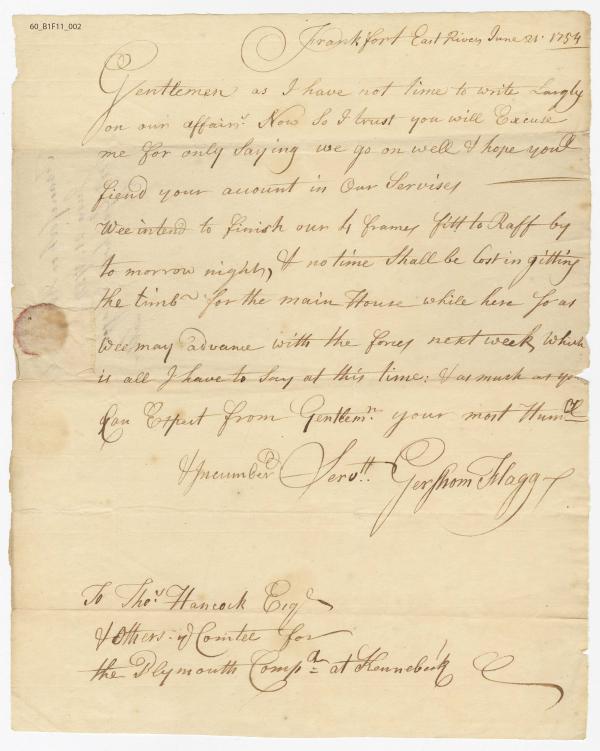 60_B1F11_002
Frankfort East River June 21. 1754
Gentlemen as I have not time to write Largly
on our affairs. Now So I trust you will Excuse
me for only Saying we go on well & hope youl
find your account in Our Servises
Wee intend to finish our 4 frames fitt to Raff by
to morrow night, & no time Shall be Lost in gitting
the timbr for the main House while here So as
Wee may advance with the forces next week, Which
is all I have to Say at this time: & as much as yo
Can Expect from Gentlemn. your most Humbl
& Incumberd Servtt. Gershom Flagg
To Thos. Hancock Esqr
& others. ye Comtee for
the Plymouth Compa. at Kennebeck